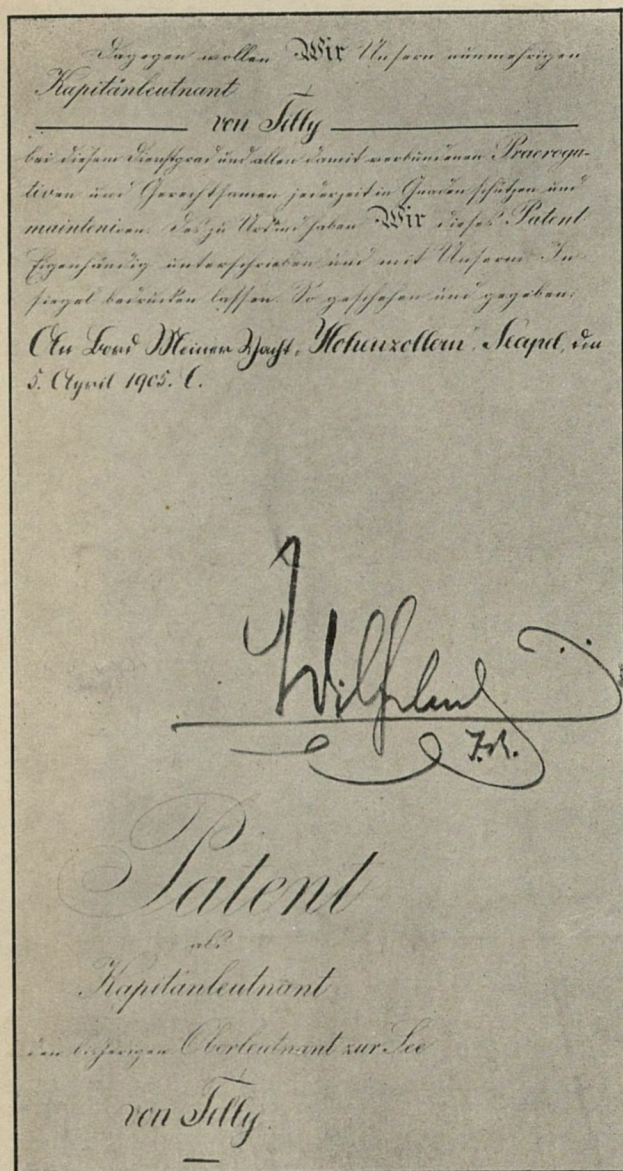 Dagegen wollen Wir Unsern nunmehrigen
Kapitänleutnant
von Tilly
bei diesem Dienstgrad und allen damit verbundenen Praeroga-
tiven und Gerechtsamen jederzeit in Gnaden schützen und
mainteniren. Des zu Urkund haben Wir dieses Patent
Eigenhändig unterschrieben und mit Unserm In-
siegel bedrucken lassen. So geschehen und gegeben:
An Bord Meiner Yacht „Hohenzollern“, Neapel, den
5. April 1905.
Wilhelm
I.R.
Patent
als
Kapitänleutnant
den bisherigen Oberleutnant zur See
von Tilly.